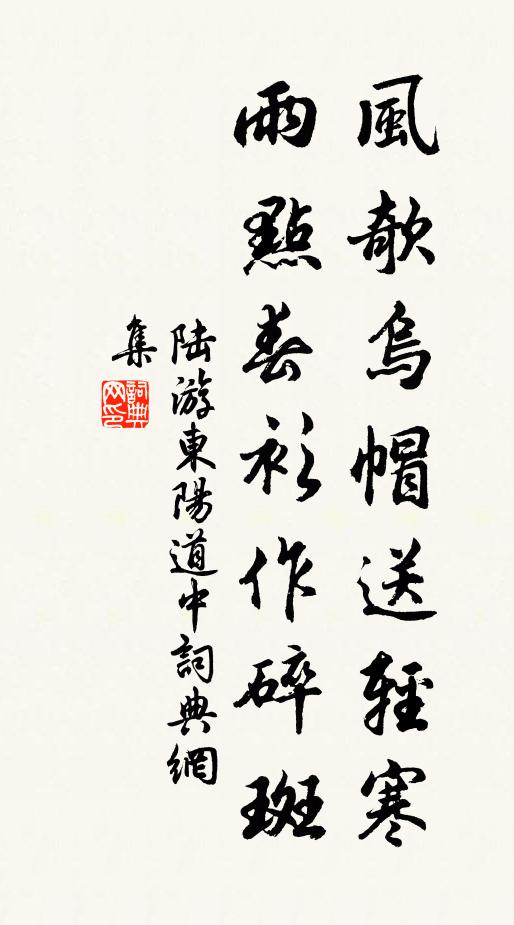 風欹烏帽送輕寒
雨點春衫作碎斑
陸游東陽道中詞典網
集
詞典
网印